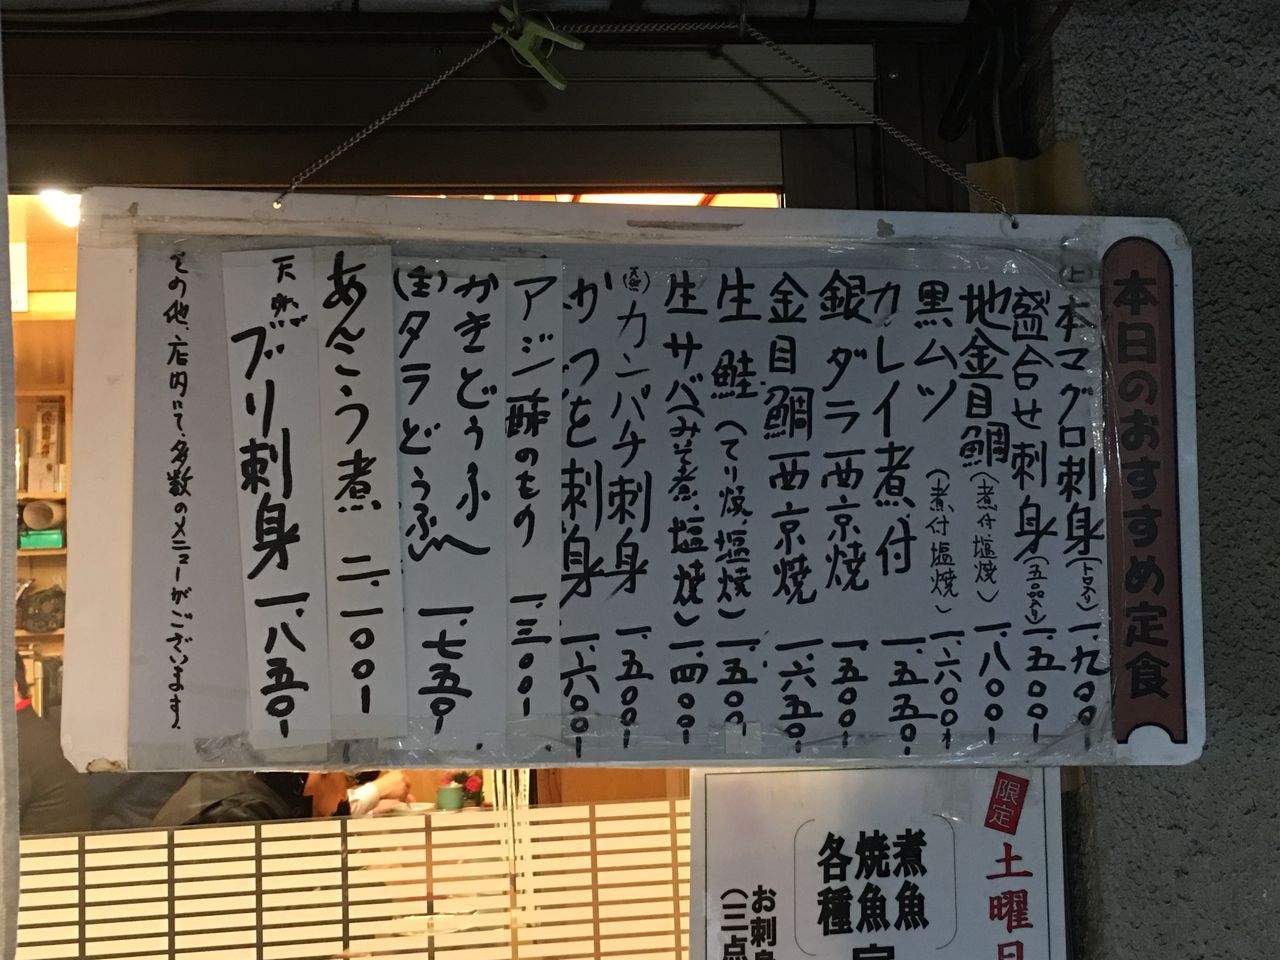 本日のおすすめ定食
(上)本マグロ刺身(トロ入り)一、九〇〇ー
盛合せ刺身(五品入り)一、五〇〇ー
地金目鯛(煮付塩焼)一、八〇〇ー
黒ムツ(煮付塩焼)一、六〇〇ー
カレイ煮付一、五五〇ー
銀ダラ西京焼一、五〇〇ー
金目鯛西京焼一、六五〇ー
生鮭(てり焼、塩焼)一、五〇〇ー
生サバ(みそ煮、塩焼)一、四〇〇ー
(天然)カンパチ刺身一、五〇〇ー
かつを刺身一、六〇〇ー
アジ酢のもの一、三〇〇ー
かきどうふ
(生)タラどうふ一、七五〇ー
あんこう煮二、一〇〇ー
天然ブリ刺身一、八五〇ー
その他、店内にて、多数のメニューがございます。
限定
土曜日
煮魚
焼魚
各種
お刺身
(三点